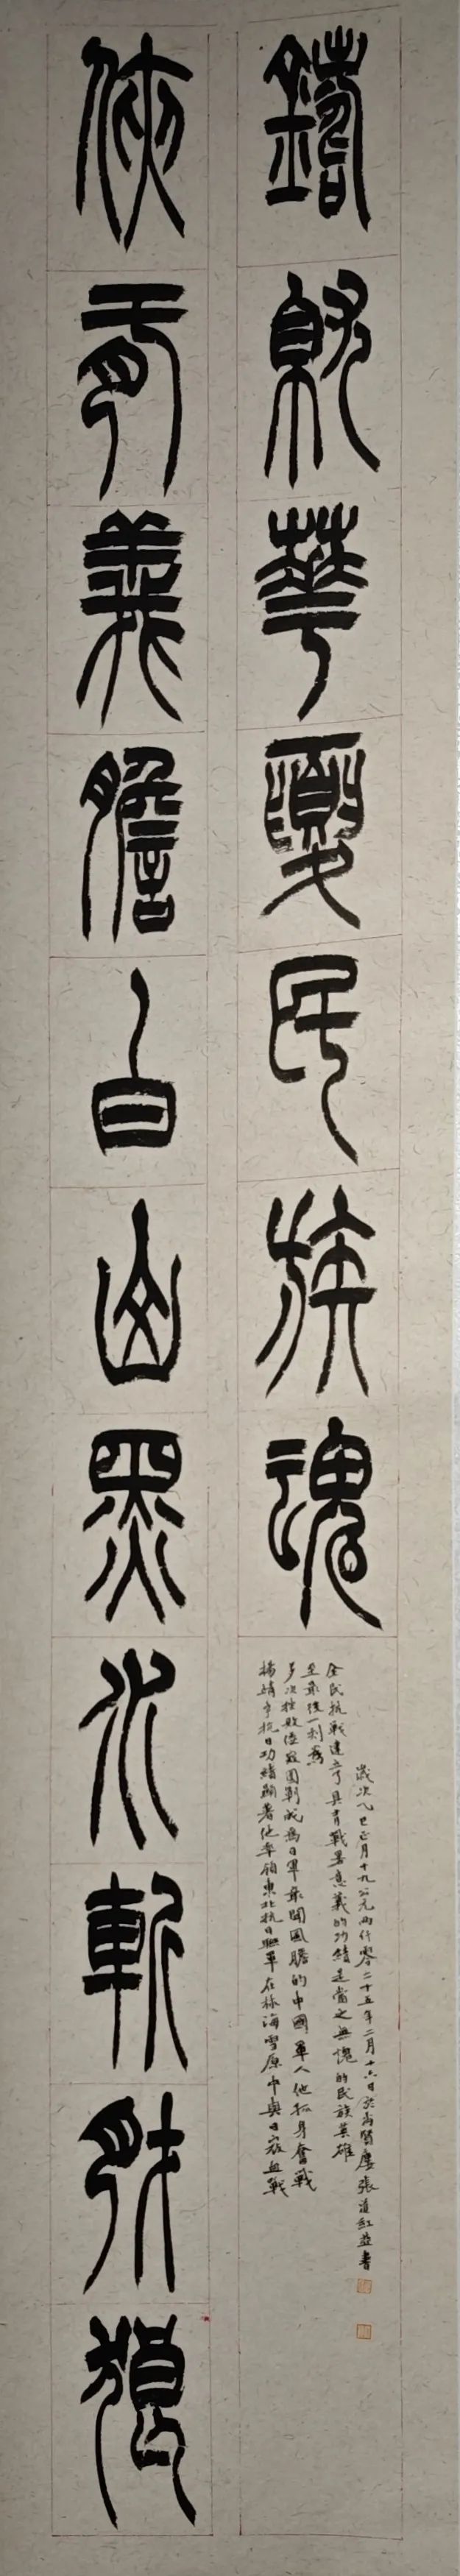 俠肝義膽白山黑水斬豺狼
鑄就華夏民族魂
楊靖宇抗日功績顯著他率領東北抗日聯軍在林海雪原中與日寇血戰
多次挫敗倭寇圍剿成為日軍最聞風膽的中國軍人他孤身奮戰
至最後一刻為
全民抗戰建立了具有戰略意義的功績是當之無愧的民族英雄
歲次乙巳正月十九公元兩仟零二十五年二月十六日於尚賢廬張道紅並書